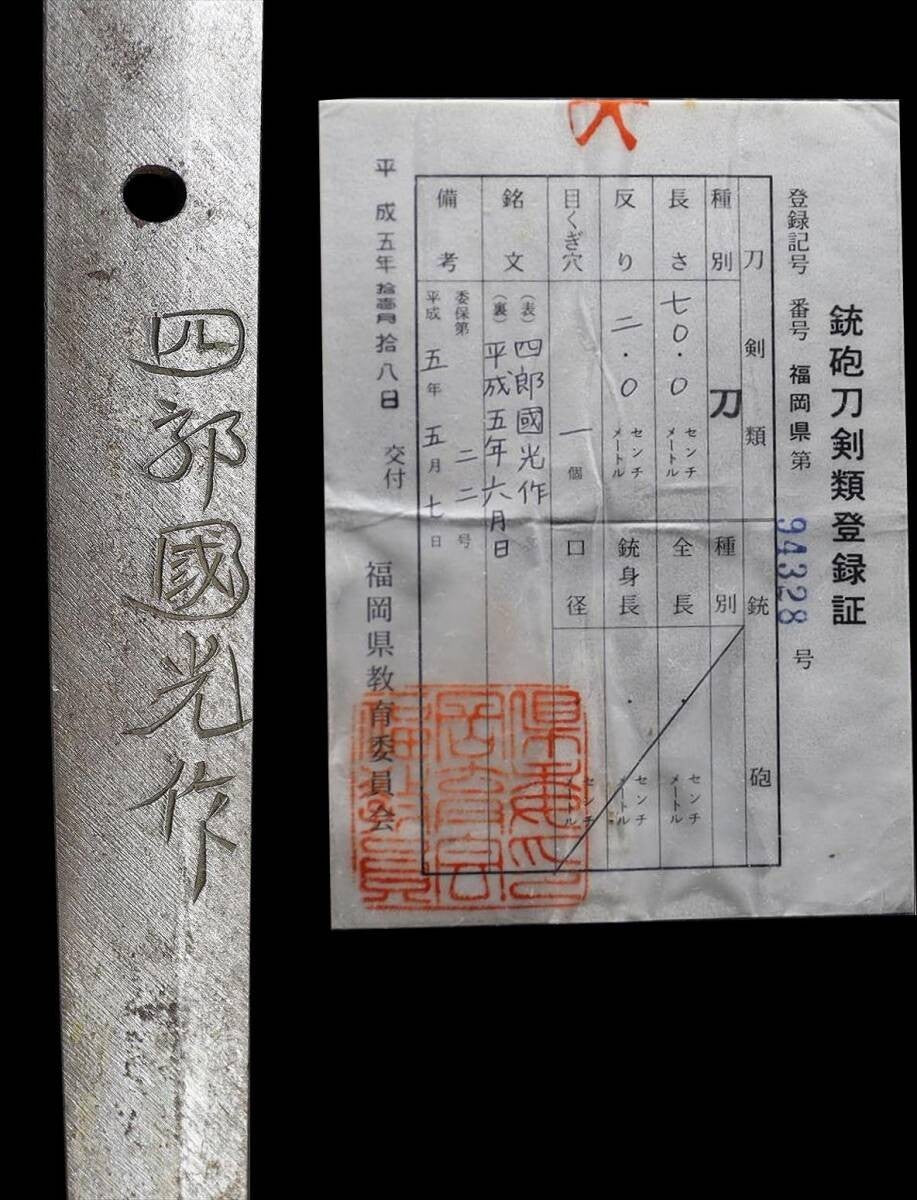 四郎國光作
銃砲刀剣類登録証
登録記号 番号 福岡県第 94328 号
刀剣類
種別 刀
長さ 七〇.〇 センチメートル
反り 二.〇 センチメートル
目くぎ穴 一 個
銘文 (表) 四郎國光作
(裏) 平成五年六月日
備考 委保第 二二 号
平成 五年 五月 七日
銃砲
種別
全長 . センチメートル
銃身長 . センチメートル
口径 センチメートル
平成五年拾壹月拾八日 交付
福岡県教育委員会